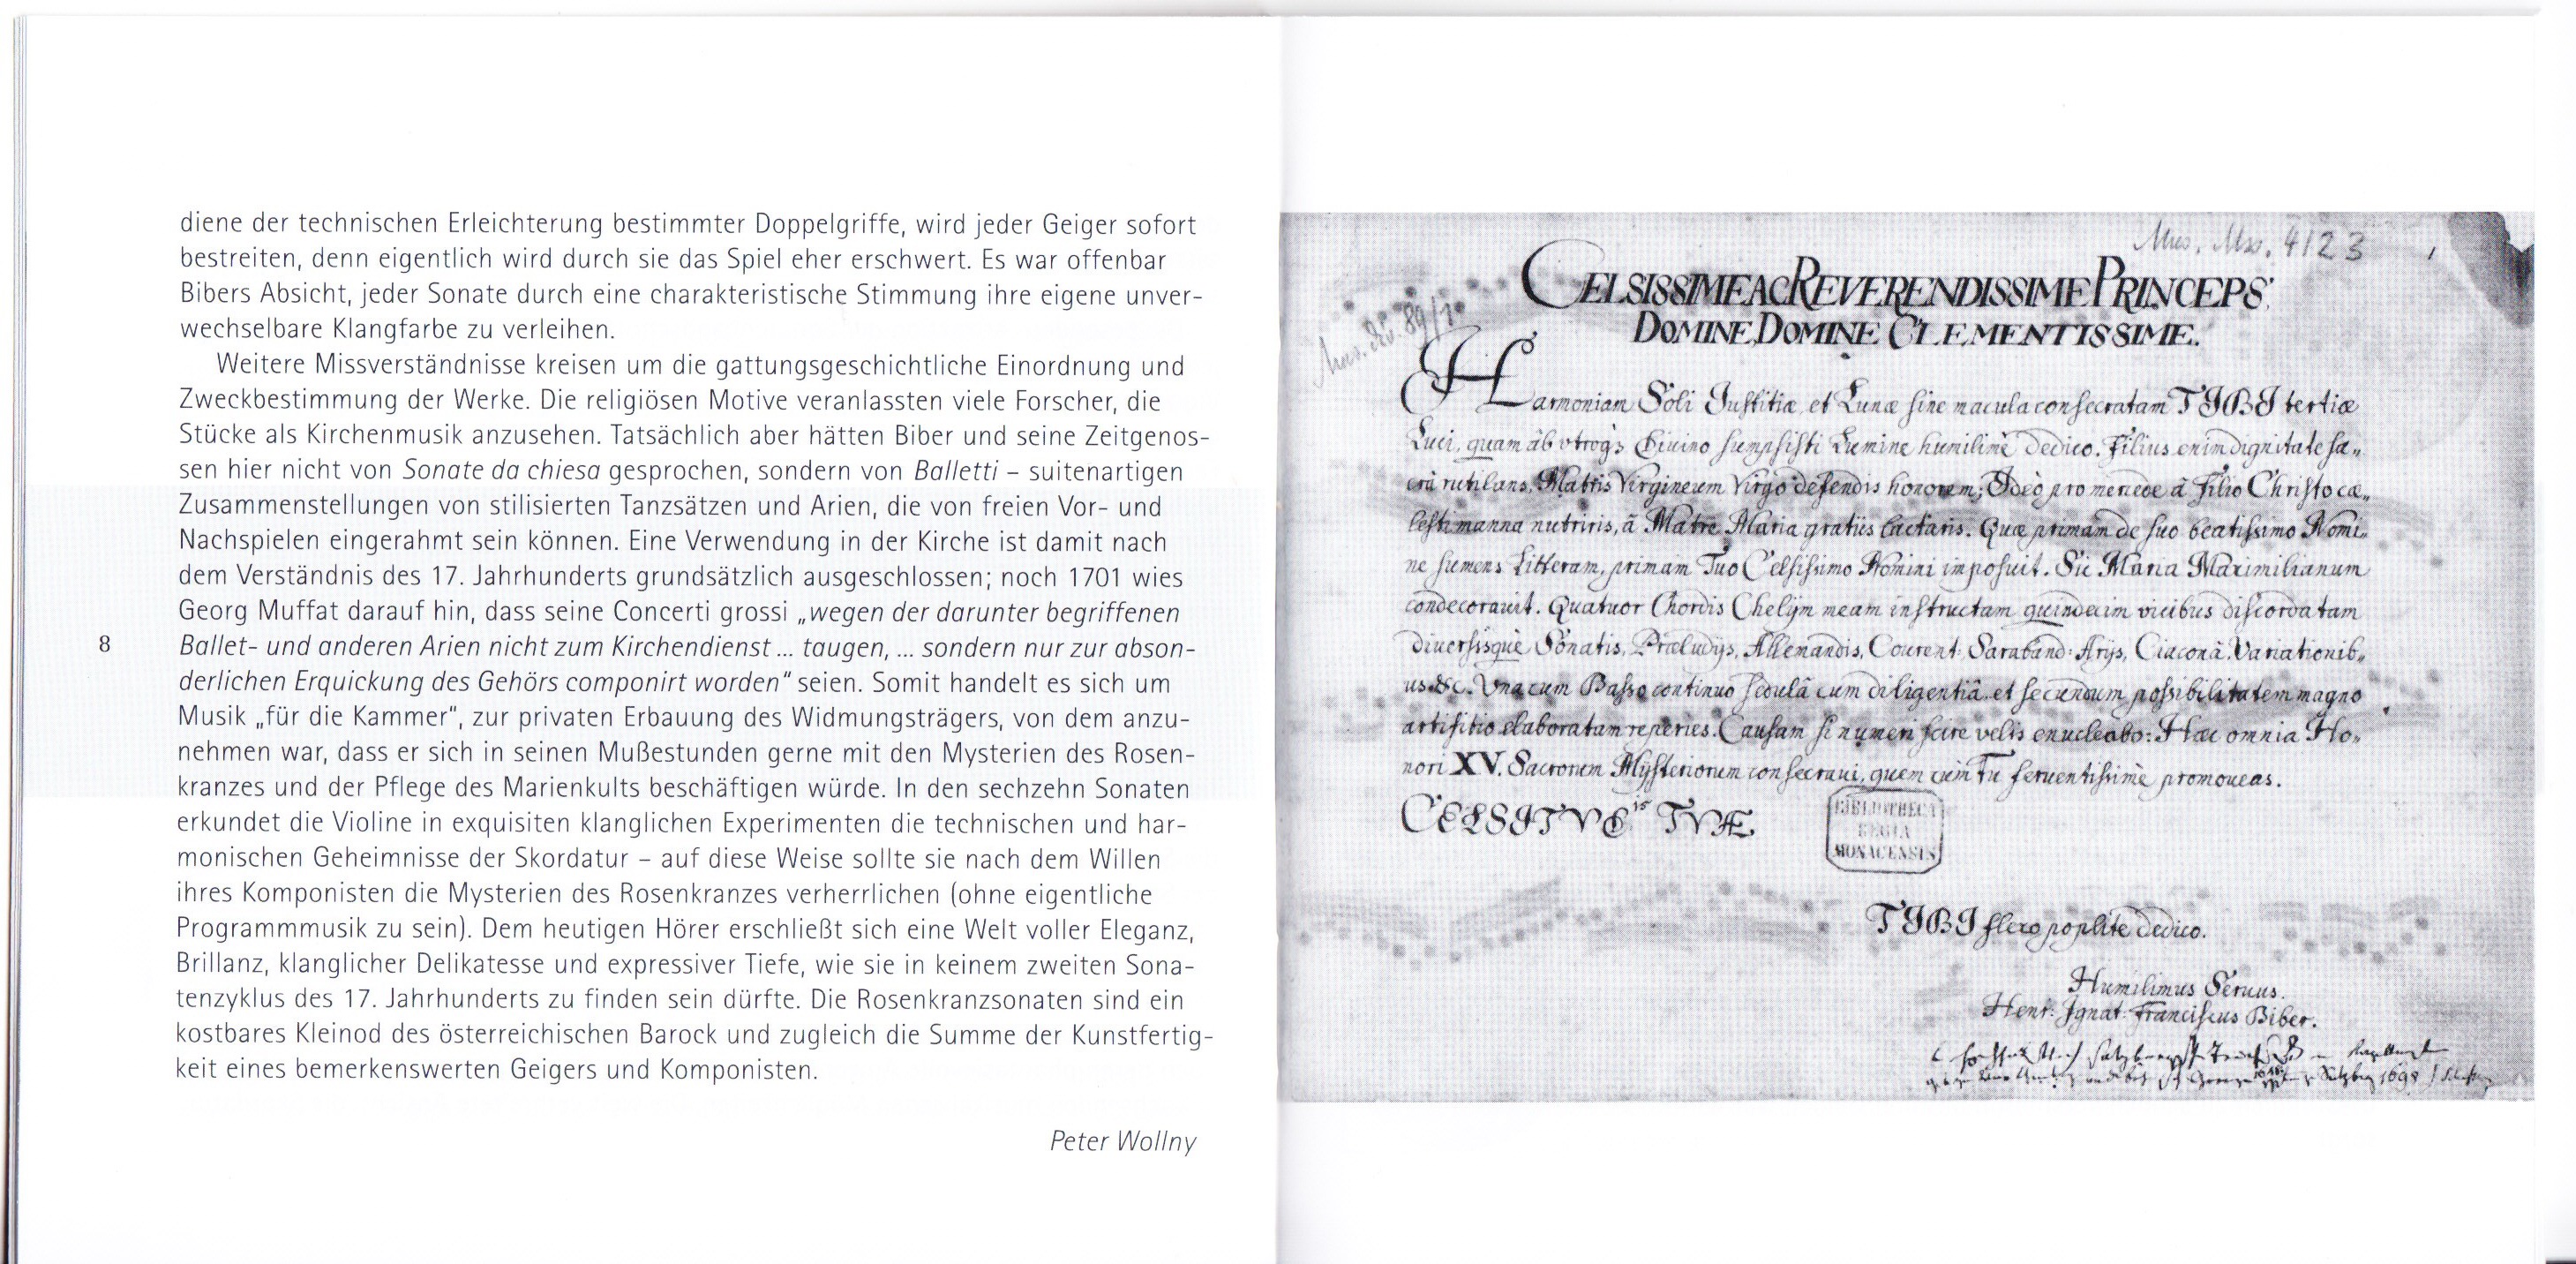 diene der technischen Erleichterung bestimmter Doppelgriffe, wird jeder Geiger sofort
bestreiten, denn eigentlich wird durch sie das Spiel eher erschwert. Es war offenbar
Bibers Absicht, jeder Sonate durch eine charakteristische Stimmung ihre eigene unver-
wechselbare Klangfarbe zu verleihen.
Weitere Missverständnisse kreisen um die gattungsgeschichtliche Einordnung und
Zweckbestimmung der Werke. Die religiösen Motive veranlassten viele Forscher, die
Stücke als Kirchenmusik anzusehen. Tatsächlich aber hätten Biber und seine Zeitgenos-
sen hier nicht von Sonate da chiesa gesprochen, sondern von Balletti – suitenartigen
Zusammenstellungen von stilisierten Tanzsätzen und Arien, die von freien Vor- und
Nachspielen eingerahmt sein können. Eine Verwendung in der Kirche ist damit nach
dem Verständnis des 17. Jahrhunderts grundsätzlich ausgeschlossen; noch 1701 wies
Georg Muffat darauf hin, dass seine Concerti grossi „wegen der darunter begriffenen
8 Ballet- und anderen Arien nicht zum Kirchendienst ... taugen, ... sondern nur zur abson-
derlichen Erquickung des Gehörs componirt worden" seien. Somit handelt es sich um
Musik „für die Kammer", zur privaten Erbauung des Widmungsträgers, von dem anzu-
nehmen war, dass er sich in seinen Mußestunden gerne mit den Mysterien des Rosen-
kranzes und der Pflege des Marienkults beschäftigen würde. In den sechzehn Sonaten
erkundet die Violine in exquisiten klanglichen Experimenten die technischen und har-
monischen Geheimnisse der Skordatur – auf diese Weise sollte sie nach dem Willen
ihres Komponisten die Mysterien des Rosenkranzes verherrlichen (ohne eigentliche
Programmmusik zu sein). Dem heutigen Hörer erschließt sich eine Welt voller Eleganz,
Brillanz, klanglicher Delikatesse und expressiver Tiefe, wie sie in keinem zweiten Sona-
tenzyklus des 17. Jahrhunderts zu finden sein dürfte. Die Rosenkranzsonaten sind ein
kostbares Kleinod des österreichischen Barock und zugleich die Summe der Kunstfertig-
keit eines bemerkenswerten Geigers und Komponisten.
Peter Wollny
Mus. Mss. 4123
CELSISSIME AC REVERENDISSIME PRINCEPS
DOMINE, DOMINE CLEMENTISSIME.
Harmoniam Soli Justitiæ, et Lunæ sine macula consecratam TIBI tertiæ
Luci, quam ab vtroq3 Diuino sumpsisti Lumine humilimè dedico. Filius enim dignitate sa„
crâ rutilans, Matris Virgineum Virgo defendis honorem; Ideò pro mercede à Filio Christo cæ„
lesti manna nutriris, â Matre Maria gratiis lactaris. Quæ primam de suo beatissimo Nomi„
ne sumens Litteram, primam Tuo Celsissimo Nomini imposuit. Sic Maria Maximilianum
condecorauit. Quatuor Chordis Chelym meam instructam quindecim vicibus discordatam
diuersisquè Sonatis, Præludijs, Allemandis, Courent: Saraband: Arijs, Ciaconâ, Variationib„
us &c. Vnacum Basso continuo sedulâ cum diligentiâ, et secundum possibilitatem magno
artifitio elaboratam reperies. Causam si numeri scire velis enucleabo: Hæc omnia Ho„
nori XV. Sacrorum Mÿsteriorum consecraui, quem cùm Tu feruentissimè promoueas.
CELSITVD is TVÆ
BIBLIOTHECA
REGIA
MONACENSIS
TIBI flexo poplite dedico.
Humilimus Seruus.
Henr: Ignat: Franciscus Biber.